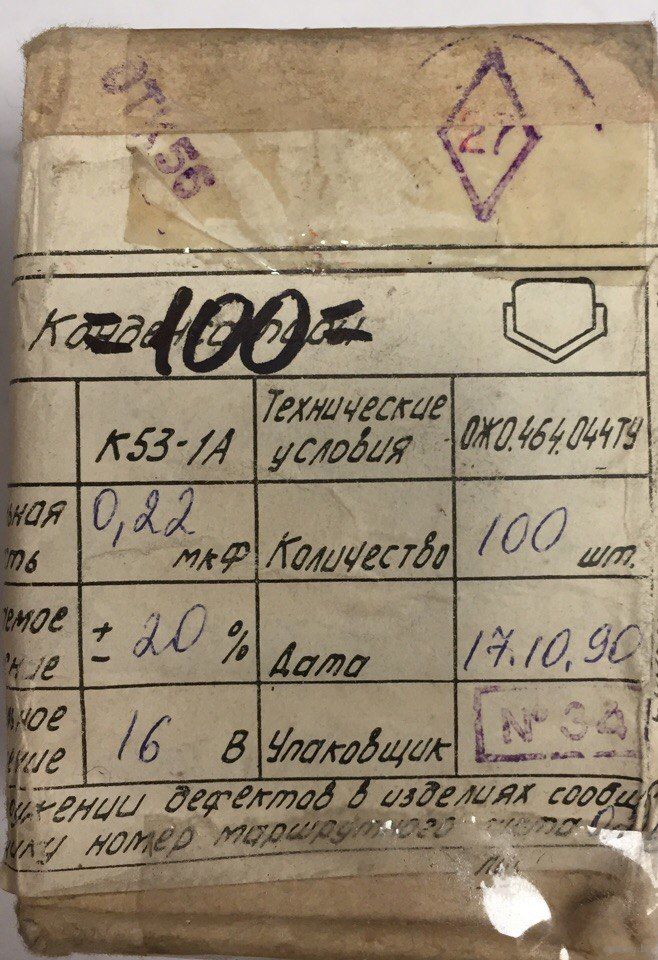 ОТК 56
27
Конденсаторы
=100=
К53-1А
Технические
условия
ОЖ0.464.044ТУ
ьная
ть
0,22
мкФ
Количество
100 шт.
емое
ние
± 20 %
Дата
17.10.90
ное
ение
16 В
Упаковщик
№ 34
ужении дефектов в изделиях сообщ
ику номер маршрутного листа